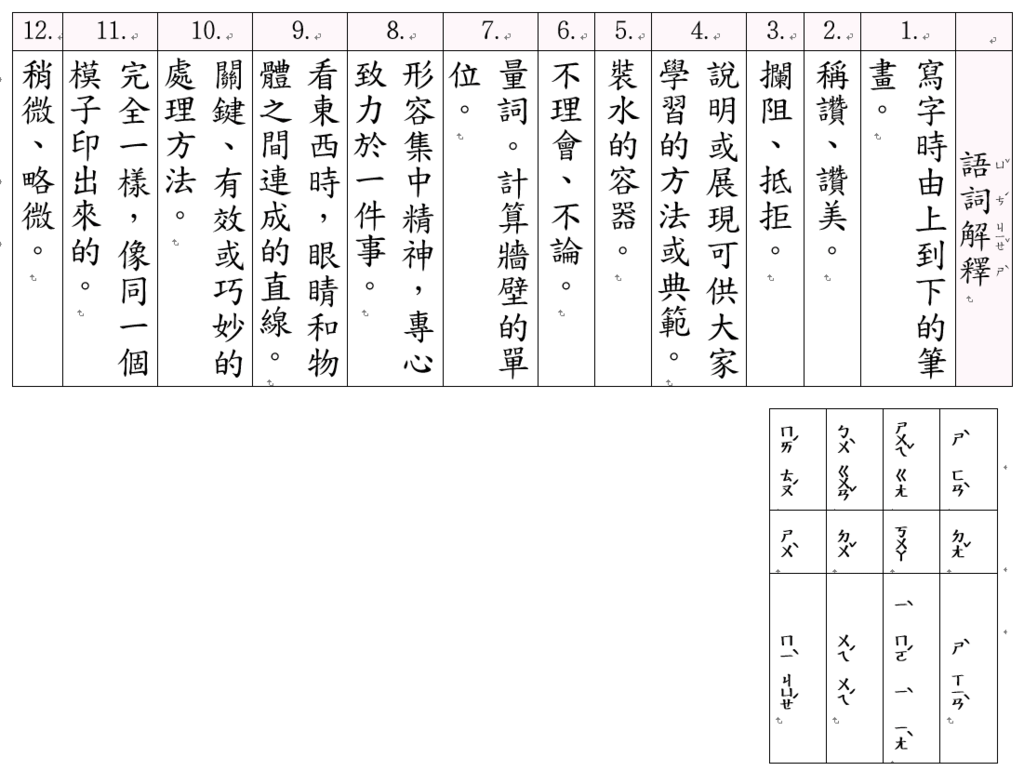 語詞解釋
ㄩˇ ㄘˊ ㄐㄧㄝˇ ㄕˋ
1.
寫字時由上到下的筆
畫。
2.
稱讚、讚美。
3.
攔阻、抵拒。
4.
說明或展現可供大家
學習的方法或典範。
5.
裝水的容器。
6.
不理會、不論。
7.
量詞。計算牆壁的單
位。
8.
形容集中精神，專心
致力於一件事。
9.
看東西時，眼睛和物
體之間連成的直線。
10.
關鍵、有效或巧妙的
處理方法。
11.
完全一樣，像同一個
模子印出來的。
12.
稍微、略微。
ㄕˋ ㄈㄢˋ
ㄉㄤˇ
ㄕˋ ㄒㄧㄢˋ
ㄕㄨㄟˇ ㄍㄤ
ㄎㄨㄚ
ㄧˋ ㄇㄛˊ ㄧˊ ㄧㄤˋ
ㄅㄨˋ ㄍㄨㄢˇ
ㄉㄨˇ
ㄨㄟˊ ㄨㄟˊ
ㄇㄞˊ ㄊㄡˊ
ㄕㄨˋ
ㄇㄧˋ ㄐㄩㄝˊ